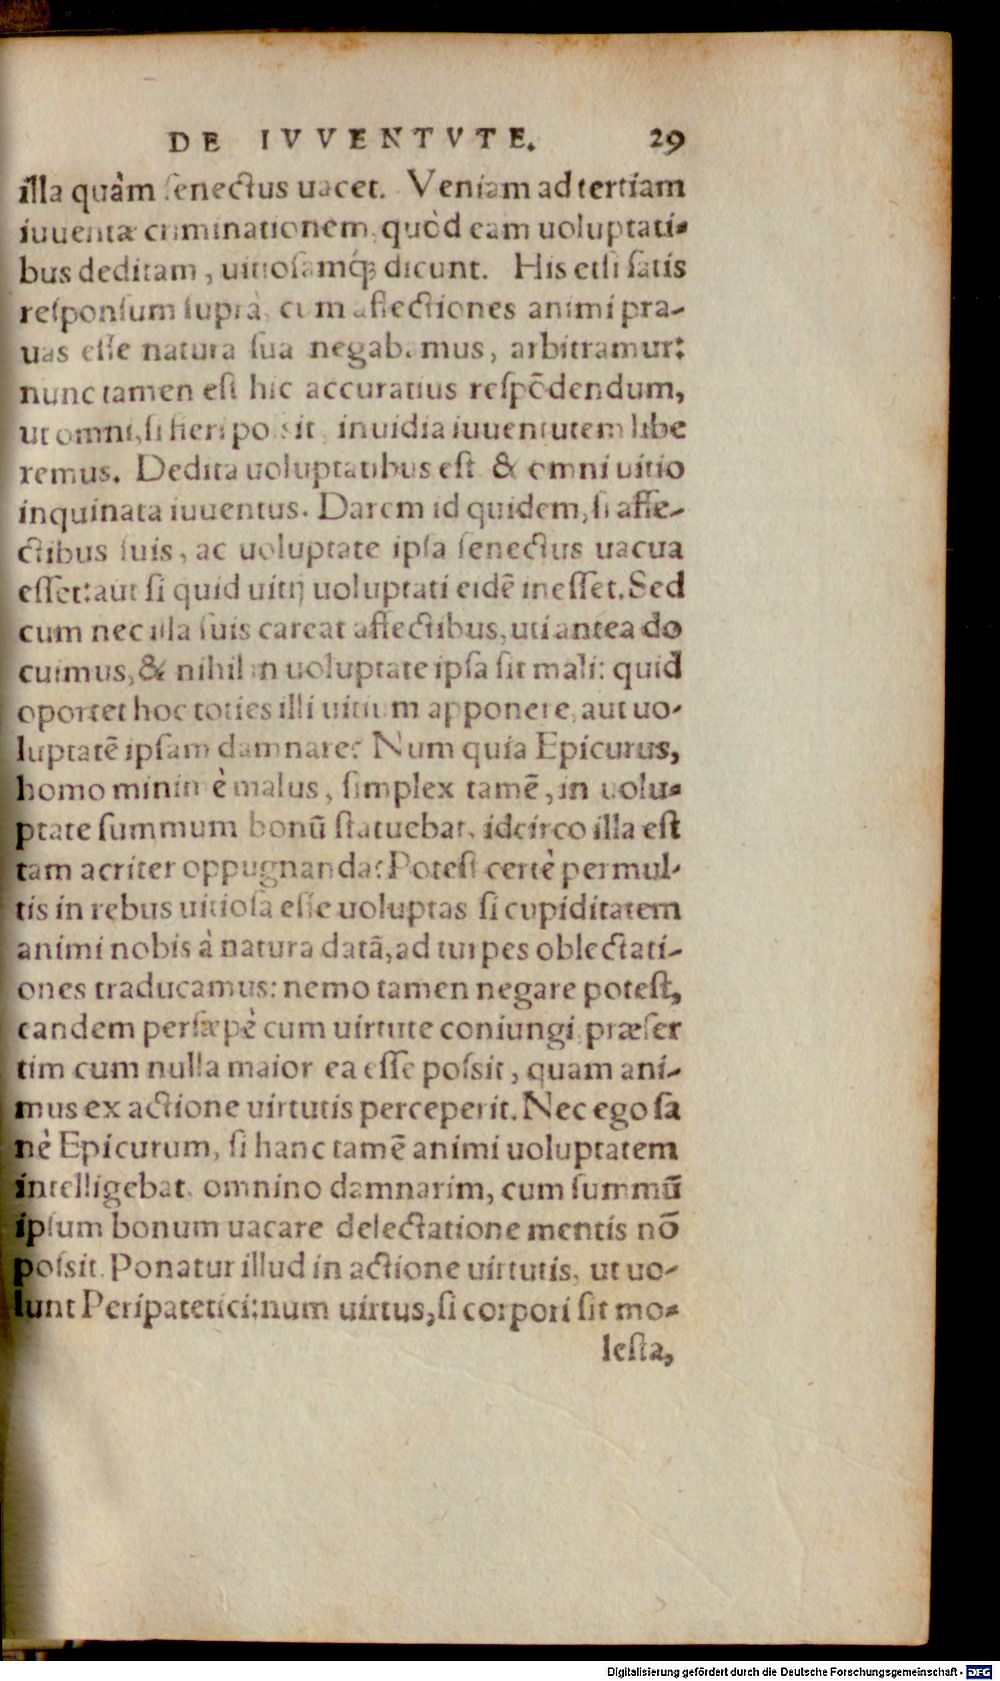 DE IVVENTVTE. 29
illa quàm senectus uacet. Veniam ad tertiam
iuuentæ criminationem, quòd eam uoluptati-
bus deditam, uitiosamq́; dicunt. His etsi satis
responsum suprà, cum affectiones animi pra-
uas esse natura sua negabimus, arbitramur:
nunc tamen est hic accuratius respõdendum,
ut omni, si fieri possit, inuidia iuuentutem libe
remus. Dedita uoluptatibus est & omni uitio
inquinata iuuentus. Darem id quidem, si affe-
ctibus suis, ac uoluptate ipsa senectus uacua
esset: aut si quid uitij uoluptati eidẽ inesset. Sed
cum nec illa suis careat affectibus, uti antea do
cuimus, & nihil in uoluptate ipsa sit mali: quid
oportet hoc toties illi uitium apponere, aut uo-
luptatẽ ipsam damnare? Num quia Epicurus,
homo minimè malus, simplex tamẽ, in uolu-
ptate summum bonũ statuebat, idcirco illa est
tam acriter oppugnanda? Potest certè permul-
tis in rebus uitiosa esse uoluptas si cupiditatem
animi nobis à natura datã, ad turpes oblectati-
ones traducamus: nemo tamen negare potest,
eandem persæpè cum uirtute coniungi præser
tim cum nulla maior ea esse possit, quam ani-
mus ex actione uirtutis perceperit. Nec ego sa
nè Epicurum, si hanc tamẽ animi uoluptatem
intelligebat, omnino damnarim, cum summũ
ipsum bonum uacare delectatione mentis nõ
possit. Ponatur illud in actione uirtutis, ut uo-
lunt Peripatetici: num uirtus, si corpori sit mo-
lesta,
Digitalisierung gefördert durch die Deutsche Forschungsgemeinschaft - DFG